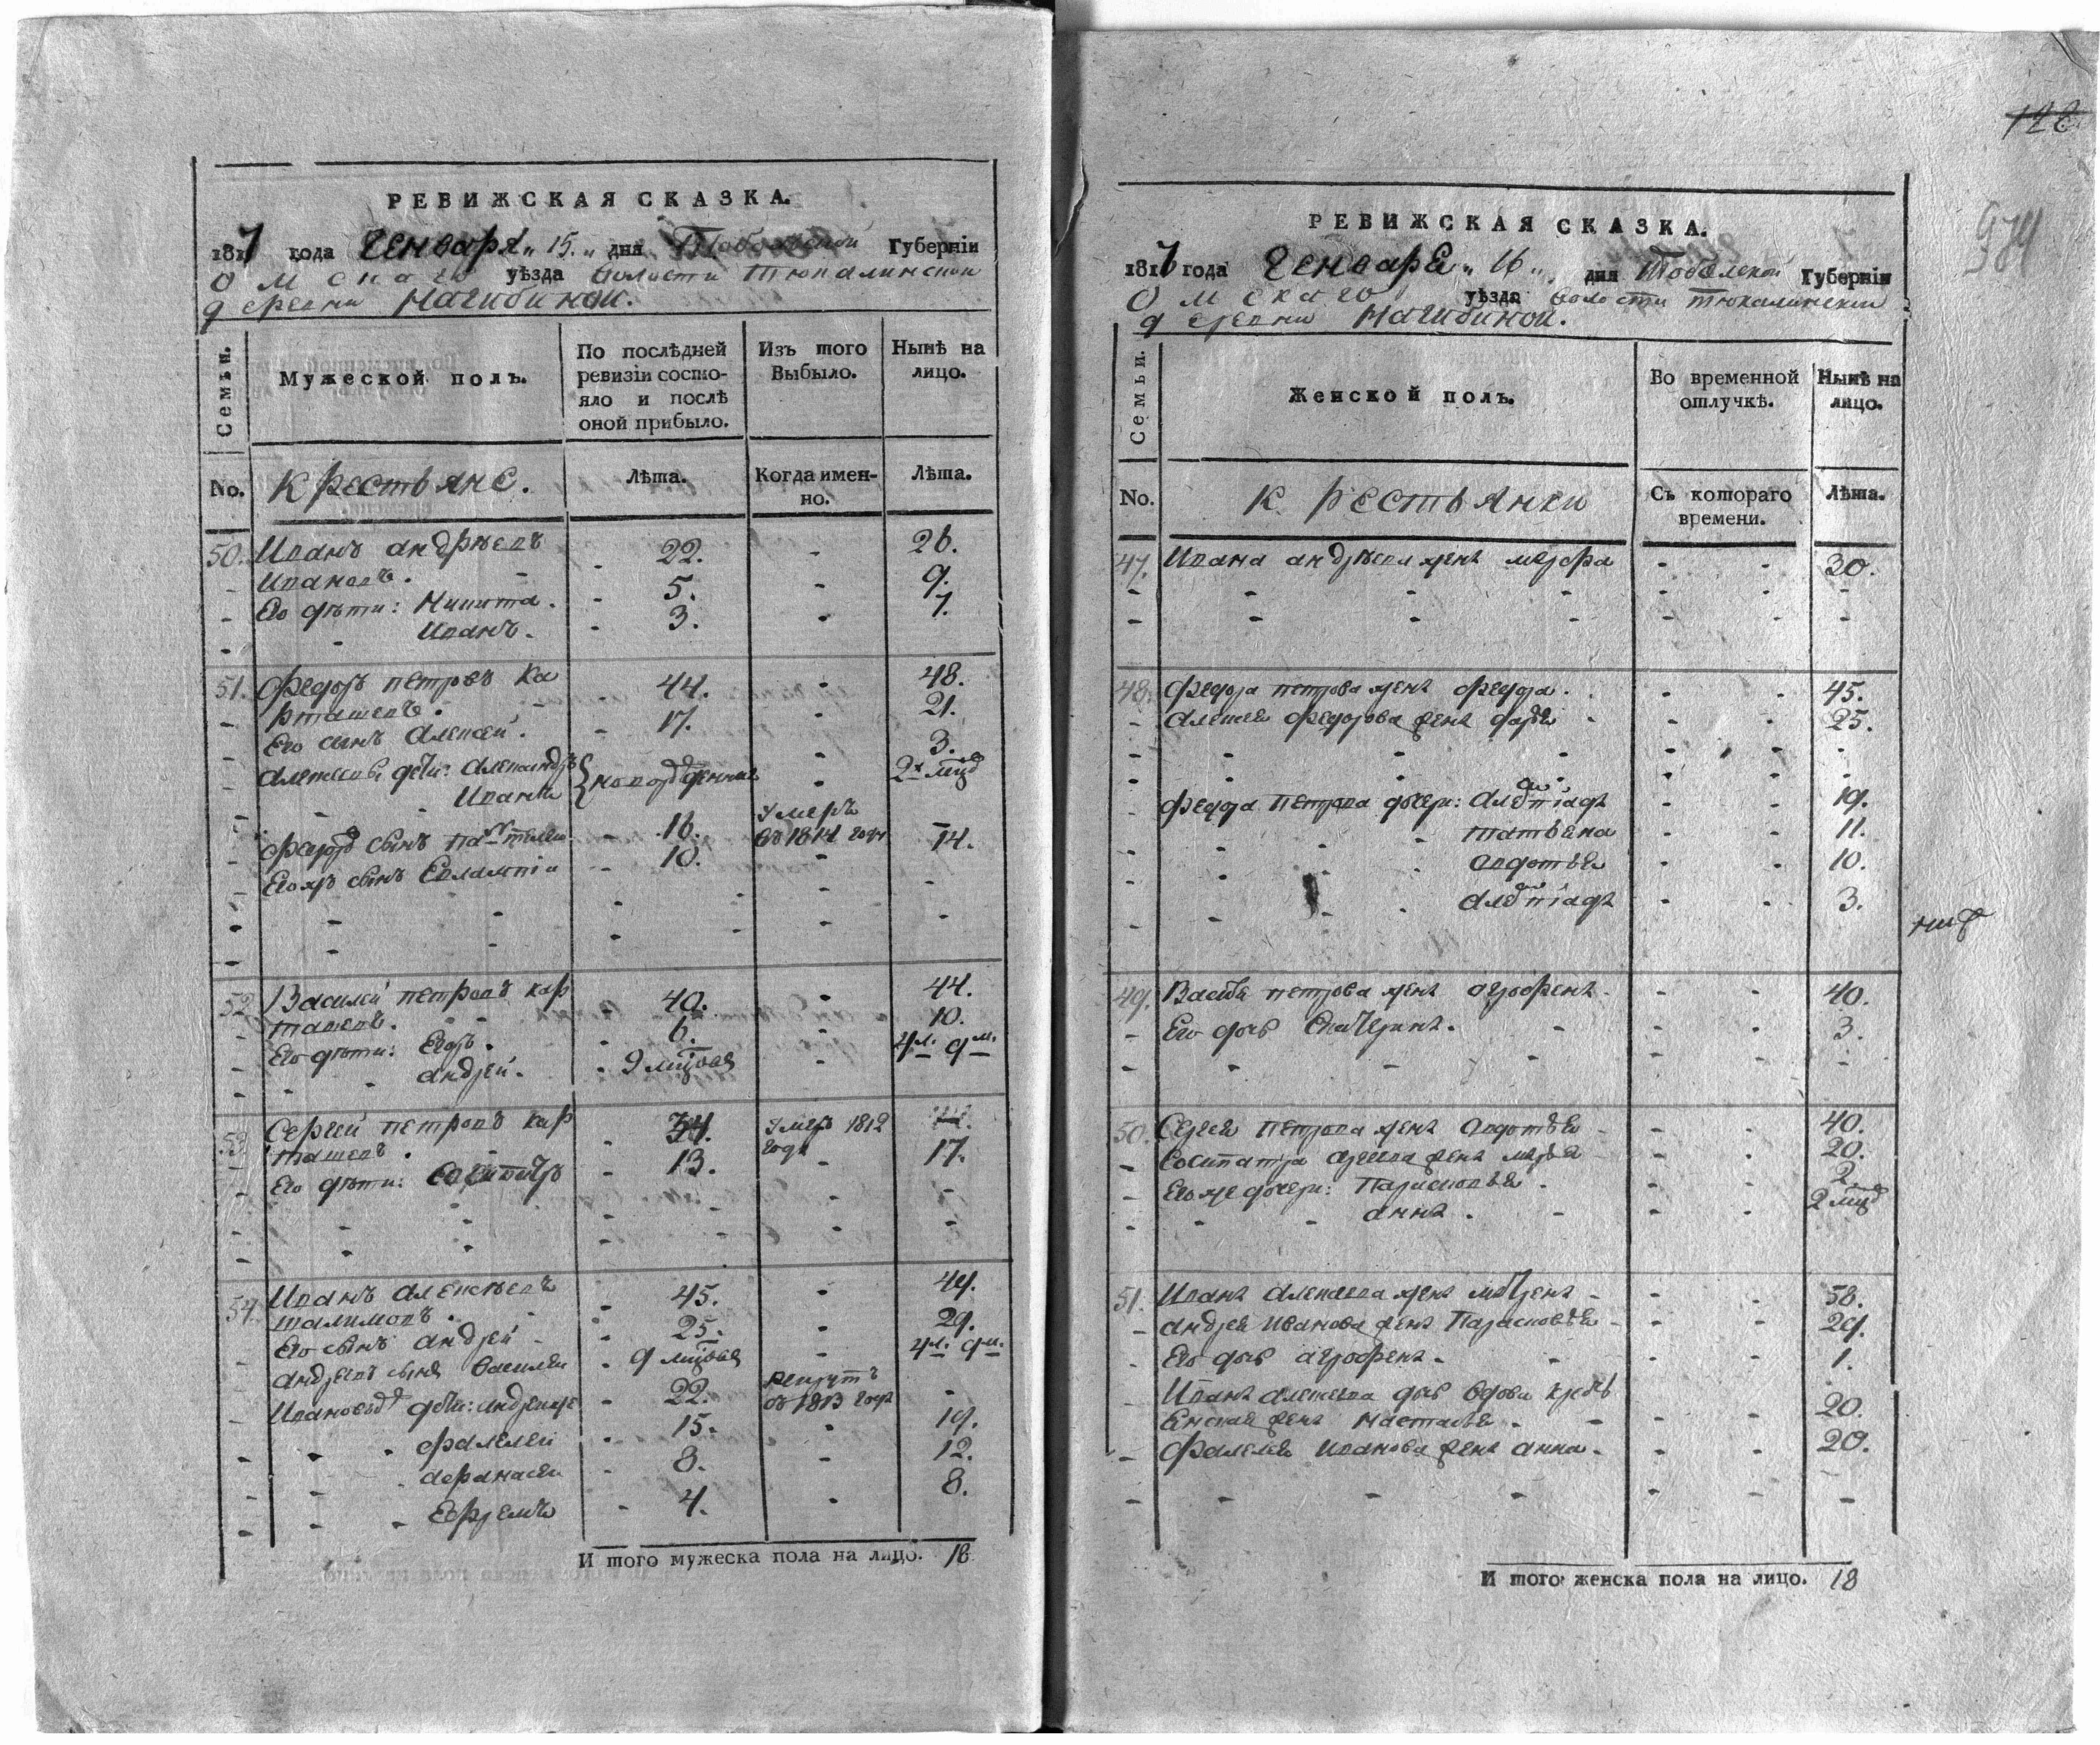 РЕВИЖСКАЯ СКАЗКА.
1817 года Генваря „ 15. „ дня Тобольской Губерніи
Омскаго уѣзда волости Тюкалинской
деревни Нагибиной.
Семьи.
Мужеской полъ.
По послѣдней ревизіи состояло и послѣ оной прибыло.
Изъ того Выбыло.
Нынѣ на лицо.
No. Крестьяне. Лѣта. Когда именно. Лѣта.
50. Иванъ андрѣевъ - 22. - 26.
Ивановъ. - 5. - 9.
Его дѣти: Никита. - 3. - 7.
Иванъ.
51. Федоръ петровъ Ка - 44. - 48.
рташевъ. - 17. - 21.
Его сынъ Алексей. - 3.
Алексеевы дѣти: Александръ } новорожденные
Иванъ
Умеръ
16. въ 1814 году
Его жъ сынъ Евлампіи - 10. - 14.
52. Василей петровъ кар - 40. - 44.
ташевъ. - 6. - 10.
Его дѣти: Егоръ. - 9 - 4 л. 9 м.
андрей.
53. Сергей петровъ кар - 34. Умеръ 1812
ташевъ. - 13. года - 17.
Его дѣти:
54. Иванъ алексѣевъ - 45. - 49.
шалимовъ. - 25. - 29.
Его сынъ андрей - 9 - 4 л. 9 м.
андреевъ сынъ Василей - 22. рекрутъ
въ 1813 году
Ивановы дѣти: - 15. - 19.
фалелей - 8. - 12.
афанасей - 4. - 8.
Ефремъ
И того мужеска пола на лицо. 18
РЕВИЖСКАЯ СКАЗКА.
года Генваря „ 16 „ дня Тобольской Губерніи
Омскаго уѣзда волости Тюкалинской
деревни Нагибиной.
Семьи.
Женской полъ.
Во временной отлучкѣ.
Нынѣ на лицо.
No. Крестьянки Съ котораго времени. Лѣта.
47. Ивана андрѣева жена марфа - - 30.
48. Федора петрова жена - - 45.
Алексея федорова жена дарья - - 25.
Федора Петрова дочери: - - 19.
татьяна - - 11.
авдотья - - 10.
3.
49. Василья петрова жена агрофена - - 40.
Его дочь Екатерина. - - 3.
50. Сергея Петрова жена авдотья - - 40.
Сосипатра сергеева жена марья - - 20.
Его же дочери: Парасковья. - - 2.
анна. - -
51. Ивана Алексеева жена матрена - - 58.
андрея Иванова жена Парасковья - - 29.
Его дочь агрофена. - - 1.
Ивана Алексеева дочь вдова
жена настасья. - - 20.
Фалелея Иванова жена анна. - - 20.
И того женска пола на лицо. 18